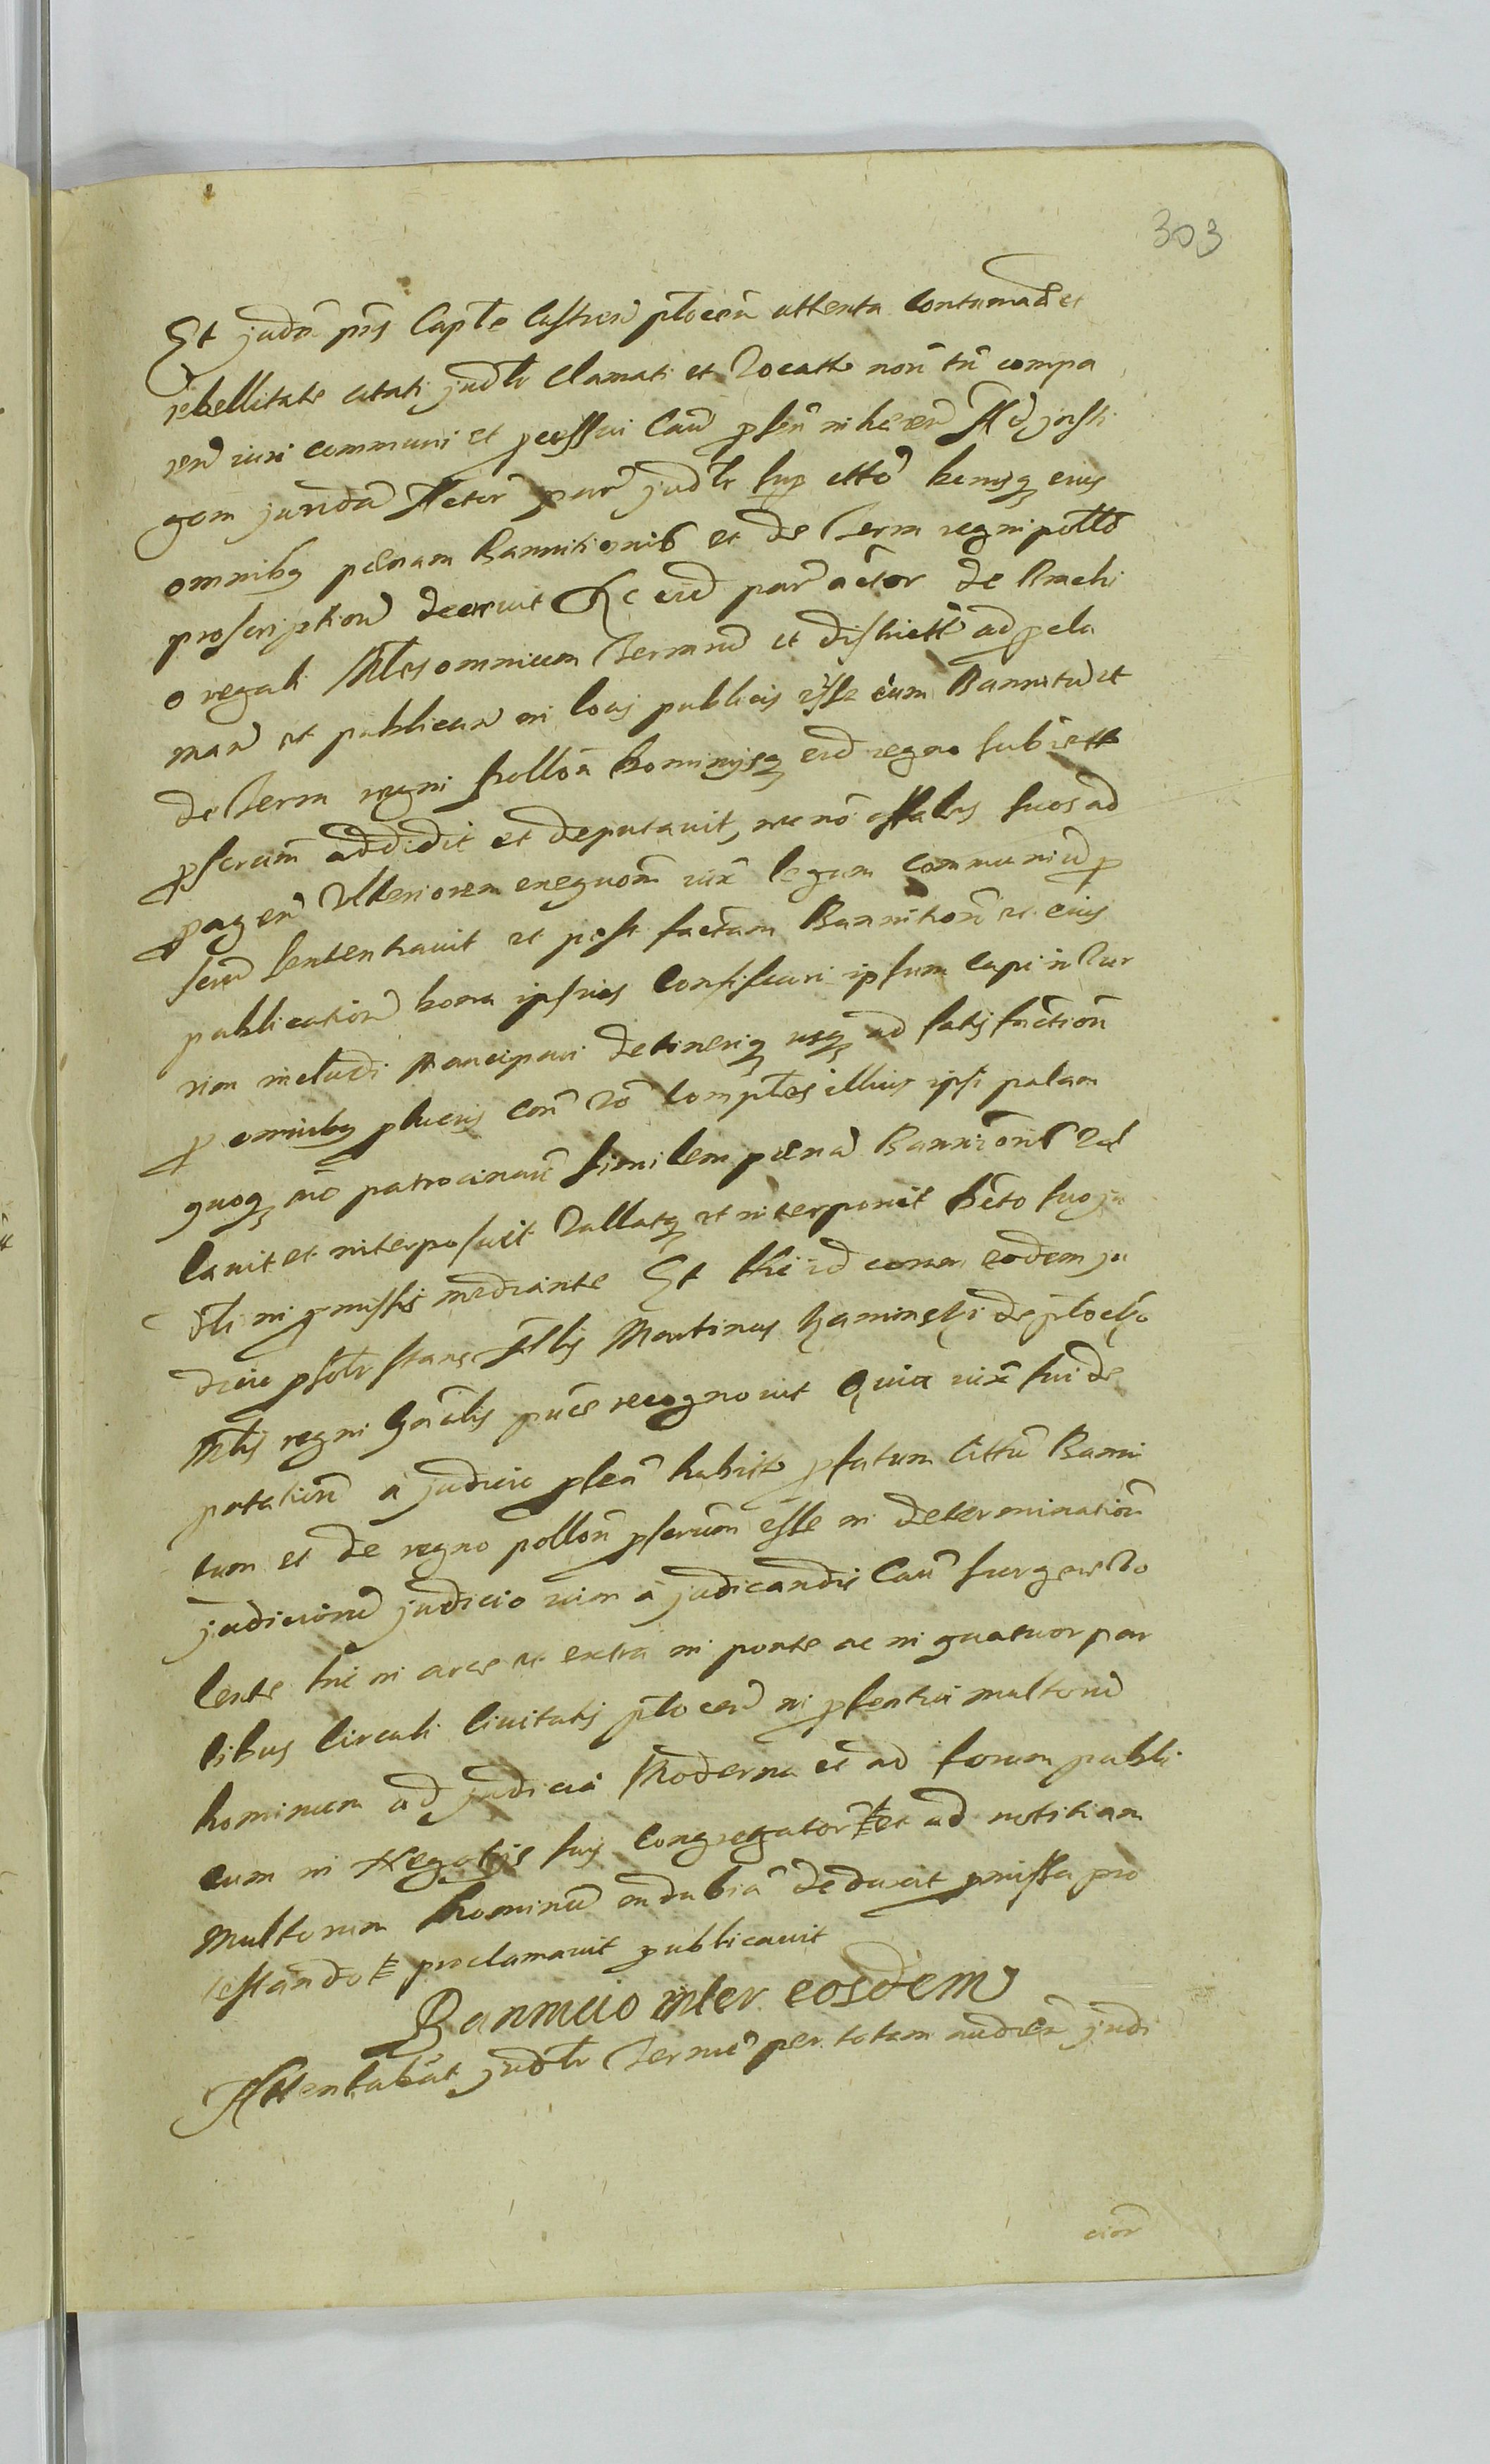 303
Et judm pns Capte Castren plocen attenta contumacia et
rebellitate citati judlr clamati et vocati non tn compa
ren iuri communi et pcessui Caus psen inheren Ad insti
gom juridicam Actor par judlr sup citto bonisq eius
omnibq pœnam Bannitionis et de Terra regni pollo
proscription decrevit Ac eid par actor de Brachi
o regali Mles omnium Terrarum et districtu ad pcla
mand et publicand in locis publicis esse eum Bannitu et
de Terra regni pollon hominijsq eid regno subiect
pscrum addidit et deputavit, nec no offales suos ad
pagen ulteriorem exequom iux legum communiu p
scru sententiavit et post factam Bannition et eius
publication bona ipsius confiscari ipsum capi in Tur
rim includi mancipari detineriq usq ad satisfaction
p omnibq plucris con vo complices illius ipsi palam
quoq mo patrocinan similem pœnam Bannionis val
lavit et interposuit vallatq et interponit Dcto suo ju
dli in pmissis mediante Et ibi id coram eodem ju
dicio psolr stans Mlis Martinus Kaminski de plocko
Mlis regni Gnalis puce recognovit Quia iux sui de
putation a judicio plen habit pfatum Cittu Banni
tum et de regno pollon pscrum esse in determination
judicioru judicio iam a judicandis Caus surgere vo
lente hic in arce et extra in ponte ac in quatuor par
tibus circuli civitatis plocen in psentia multoru
hominum ad judicia moderna et ad forum publi
cum in Negotijs suis congregator et ad notitiam
multorum hominu indubia deduxit pmissa pro
testando proclamavit publicavit
Bannicio inter eosdem
Attentabat judlr Terminu per totam audien judi
cior